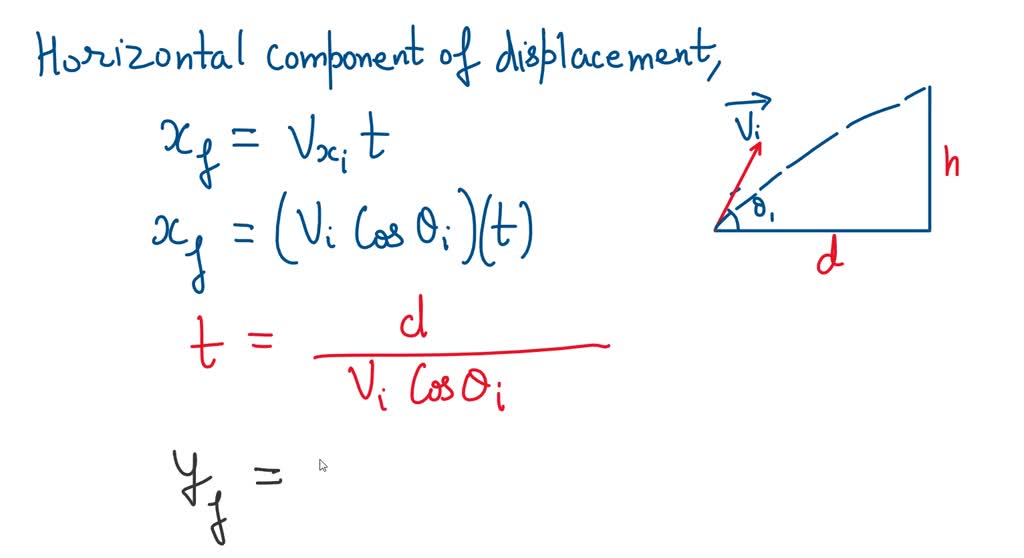 Horizontal component of displacement,
x_f = V_xi t
x_f = (Vi Cos θi)(t)
t = d / Vi Cos θi
y_f =
Vi
θ1
h
d